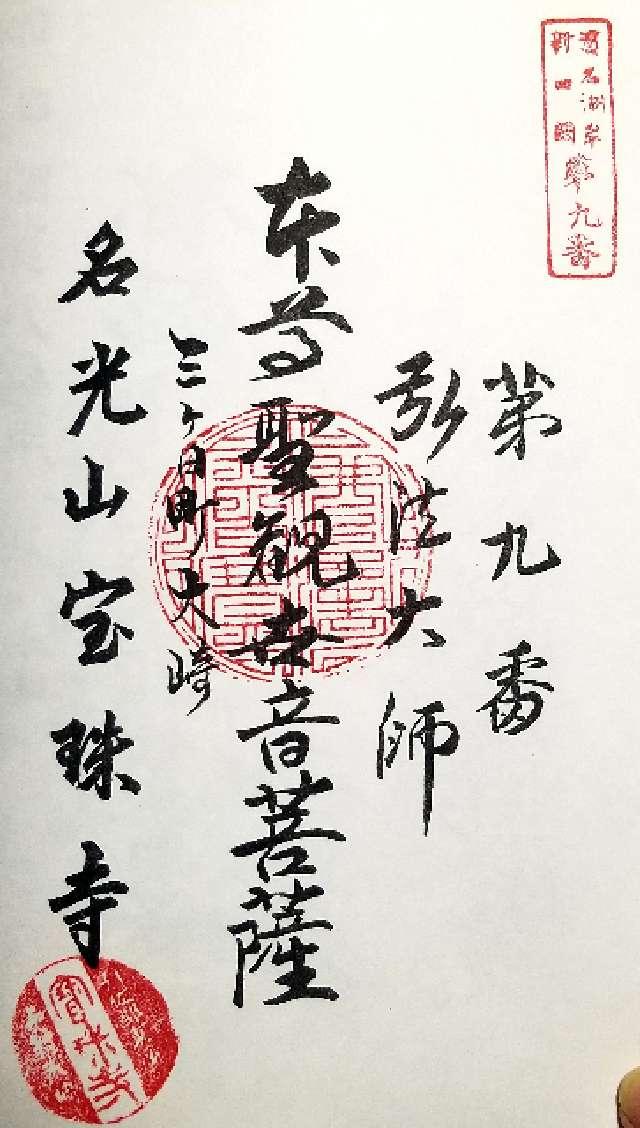 濱名湖岸
新四國第九番
第九番
弘法大師
本尊聖観世音菩薩
三ヶ日町大崎
名光山宝珠寺